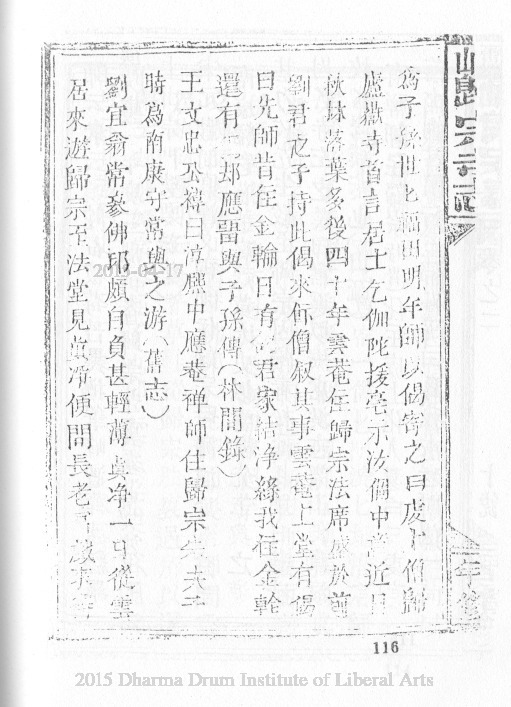 山歸宗寺志
為子孫世七福田明年師以偈寄之曰皮下僧歸
盧嶽寺首言居士乞伽陀援毫示汝箇中意近日
秋林落葉多後四十年雲菴住歸宗法席盛於前
劉君之子持此偈來飯僧叙其事雲菴上堂有偈
曰先師昔住金輪日有偈君家結净緣我住金輪
還有偈却應畱與子孫傳(林間錄)
王文忠公禕曰淳熙中應菴禪師住歸宗朱夫子
時為南康守常與之游(舊志)
劉宜翁常參佛印頗自負甚輕薄真净一日從雲
居來遊歸宗至法堂見真净便問長老
116
2015-04-17
2015 Dharma Drum Institute of Liberal Arts